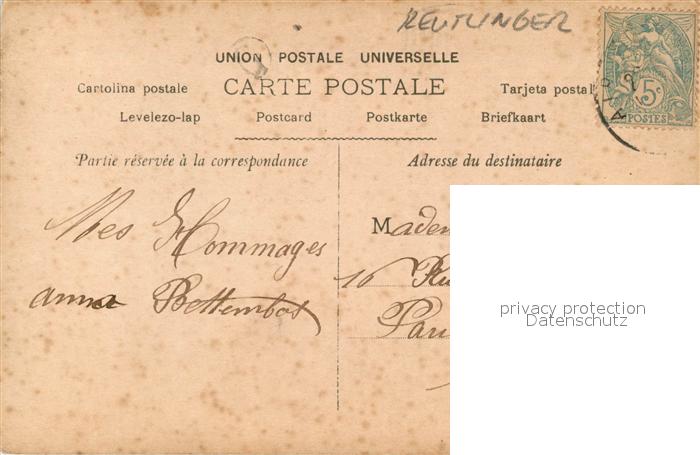 REUTLINGER
UNION POSTALE UNIVERSELLE
Cartolina postale CARTE POSTALE Tarjeta postal
Levelezo-lap Postcard Postkarte Briefkaart
Partie réservée à la correspondance
Adresse du destinataire
5c
POSTES
Mes Hommages
anna
Madem
16 Ru
Pari
privacy protection
Datenschutz